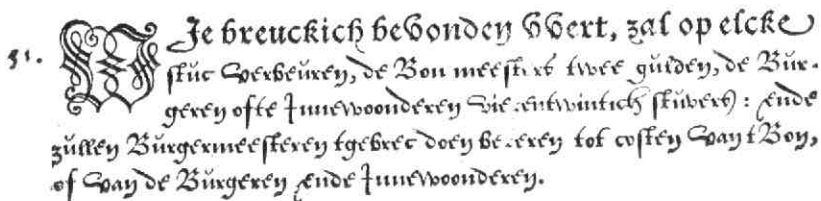 51. WIe breuckich bevonden wert, zal op elcke
stuc verbeuren, de Bon meesters twee gulden, de Bur-
geren ofte Innewoonderen vierentwintich stuvers: Ende
zullen Burgermeesteren tgebrec doen beteren tot costen van t Bon,
of van de Burgeren Ende Innewoonderen.